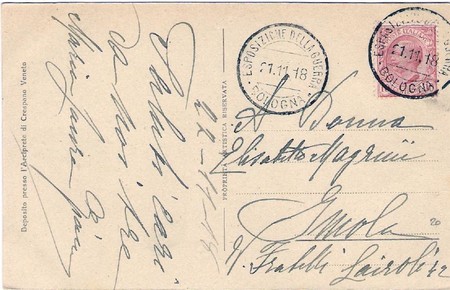 Deposito presso l'Arciprete di Crespano Veneto
PROPRIETÀ ARTISTICA RISERVATA
22-11-18
Saluti cari
da noi tre
Maria Laura
ESPOSIZIONE DELLA GUERRA
21.11.18
BOLOGNA
ESPOSIZIONE DELLA GUERRA
21.11.18
BOLOGNA
A Donna
Elisabetta Magrini
Imola
V. Fratelli Cairoli 42
20